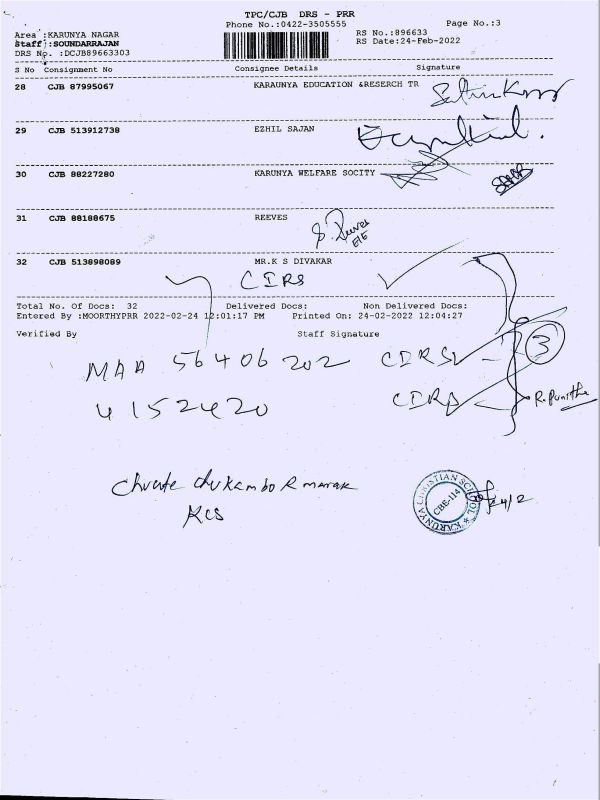 TPC/CJB DRS - PRR
Phone No.:0422-3505555
Page No.:3
Area :KARUNYA NAGAR
RS No.:896633
Staff :SOUNDARRAJAN
RS Date:24-Feb-2022
DRS No. :DCJB89663303
S No Consignment No Consignee Details Signature
28 CJB 87995067 KARAUNYA EDUCATION &RESERCH TR
29 CJB 513912738 EZHIL SAJAN
30 CJB 88227280 KARUNYA WELFARE SOCITY
31 CJB 88188675 REEVES
32 CJB 513898089 MR.K S DIVAKAR
CIRS
Total No. Of Docs: 32 Delivered Docs: Non Delivered Docs:
Entered By :MOORTHYPRR 2022-02-24 12:01:17 PM Printed On: 24-02-2022 12:04:27
Verified By Staff Signature
MAA 56406202
3
4152420
R. Punitha
KCS
KARUNYA CHRISTIAN SCHOOL
CBE-114
24/2